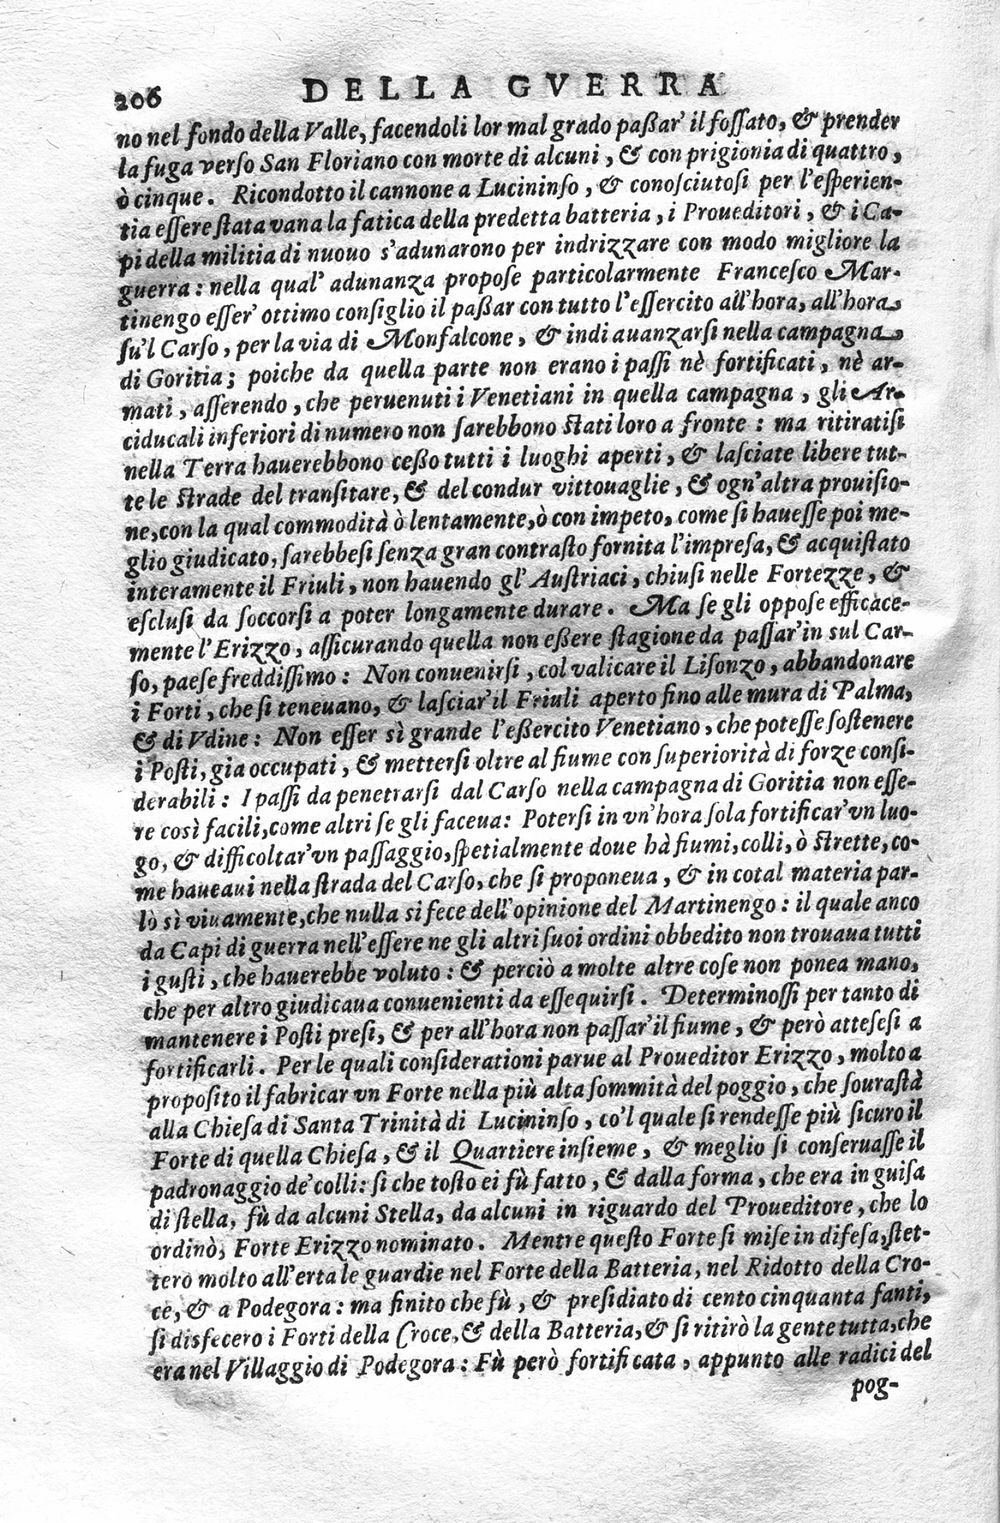 206 DELLA GVERRA
no nel fondo della Valle, facendoli lor mal grado paßar' il foſſato, & prender
la fuga verſo San Floriano con morte di alcuni, & con prigionia di quattro,
ò cinque. Ricondotto il cannone a Lucininſo, & conoſciutoſi per l'eſperien-
tia eſſere ſtata vana la fatica della predetta batteria, i Proueditori, & i Ca-
pi della militia di nuouo s'adunarono per indrizzare con modo migliore la
guerra: nella qual' adunanza propoſe particolarmente Franceſco Mar-
tinengo eſſer' ottimo conſiglio il paßar con tutto l'eſſercito all'hora, all'hora
ſu'l Carſo, per la via di Monfalcone, & indi auanzarſi nella campagna
di Goritia; poiche da quella parte non erano i paſſi nè fortificati, nè ar-
mati, aſſerendo, che peruenuti i Venetiani in quella campagna, gli Ar-
ciducali inferiori di numero non ſarebbono ſtati loro a fronte: ma ritiratiſi
nella Terra hauerebbono ceßo tutti i luoghi aperti, & laſciate libere tut-
te le ſtrade del tranſitare, & del condur vittouaglie, & ogn'altra prouiſio-
ne, con la qual commodità ò lentamente, ò con impeto, come ſi haueſſe poi me-
glio giudicato, ſarebbeſi ſenza gran contraſto fornita l'impreſa, & acquiſtato
interamente il Friuli, non hauendo gl' Auſtriaci, chiuſi nelle Fortezze, &
eſcluſi da ſoccorſi a poter longamente durare. Ma ſe gli oppoſe efficace-
mente l'Erizzo, aſſicurando quella non eßere ſtagione da paſſar'in sul Car-
ſo, paeſe freddiſſimo: Non conuenirſi, col valicare il Liſonzo, abbandonare
i Forti, che ſi teneuano, & laſciar'il Friuli aperto fino alle mura di Palma,
& di Vdine: Non eſſer sì grande l'eßercito Venetiano, che poteſſe ſoſtenere
i Poſti, gia occupati, & metterſi oltre al fiume con ſuperiorità di forze conſi-
derabili: I paſſi da penetrarſi dal Carſo nella campagna di Goritia non eſſe-
re così facili, come altri ſe gli faceua: Poterſi in vn'hora ſola fortificar'vn luo-
go, & difficoltar'vn paſſaggio, ſpetialmente doue hà fiumi, colli, ò ſtrette, co-
me haueaui nella ſtrada del Carſo, che ſi proponeua, & in cotal materia par-
lò sì viuamente, che nulla si fece dell'opinione del Martinengo: il quale anco
da Capi di guerra nell'eſſere ne gli altri ſuoi ordini obbedito non trouaua tutti
i guſti, che hauerebbe voluto: & perciò a molte altre coſe non ponea mano,
che per altro giudicaua conuenienti da eſſequirſi. Determinoſſi per tanto di
mantenere i Poſti preſi, & per all'hora non paſſar'il fiume, & però atteſeſi a
fortificarli. Per le quali conſiderationi parue al Proueditor Erizzo, molto a
propoſito il fabricar vn Forte nella più alta ſommità del poggio, che ſouraſtà
alla Chieſa di Santa Trinità di Lucininſo, co'l quale ſi rendeſſe più ſicuro il
Forte di quella Chieſa, & il Quartiere inſieme, & meglio ſi conſeruaſſe il
padronaggio de' colli: ſi che toſto ei fù fatto, & dalla forma, che era in guiſa
di ſtella, fù da alcuni Stella, da alcuni in riguardo del Proueditore, che lo
ordinò, Forte Erizzo nominato. Mentre queſto Forte ſi miſe in difeſa, ſtet-
tero molto all'erta le guardie nel Forte della Batteria, nel Ridotto della Cro-
ce, & a Podegora: ma finito che fù, & preſidiato di cento cinquanta fanti,
ſi disfecero i Forti della Croce, & della Batteria, & ſi ritirò la gente tutta, che
era nel Villaggio di Podegora: Fù però fortificata, appunto alle radici del
pog-